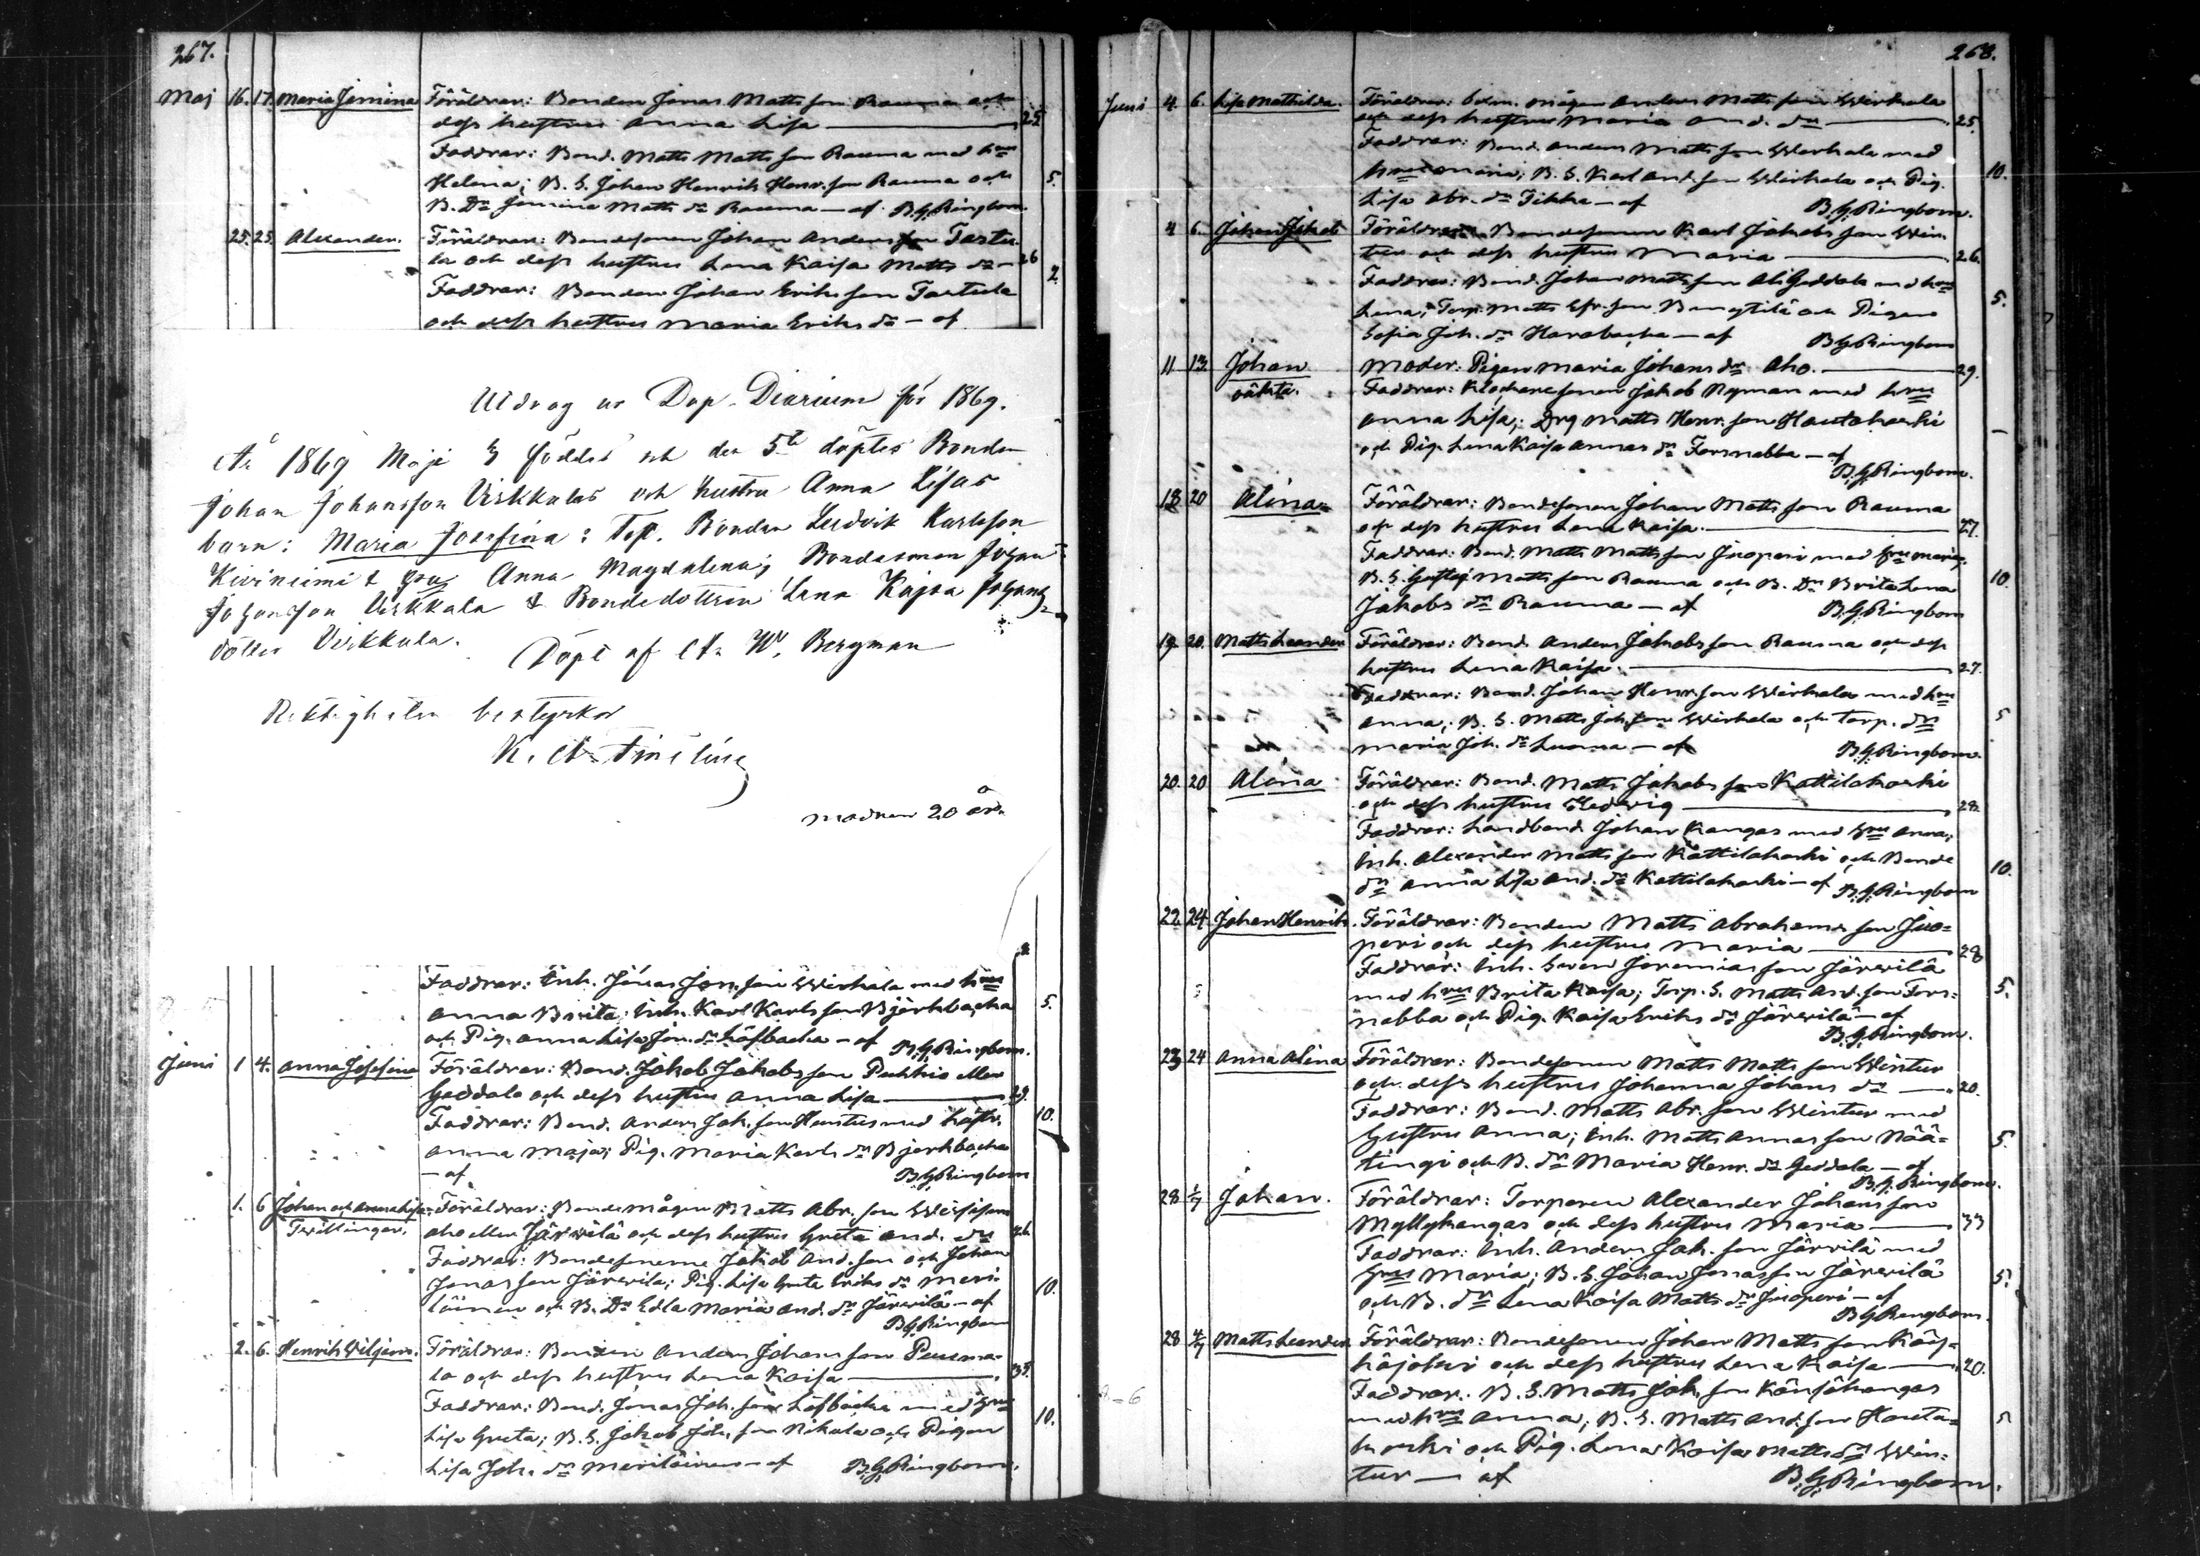 267.
Maj 16. 17. Maria Jemina Föräldrar: Bonden Jonas Matts son Rauma och
dess hustru Anna Lisa — 25
Faddrar: Bond. Matts Matts son Rauma med hru
Helena; B. S. Johan Henrik Henr. son Rauma och 5.
B. Dr Jemina Matts dr Rauma — af B.G. Ringbom
25. 25. Alexander. Föräldrar: Bondesonen Johan Anders son Tastu
la och dess hustru Lena Kaisa Matts dr — 26
Faddrar: Bonden Johan Eriks son Tastula 2.
och dess hustru Maria Eriks dr — af
Utdrag ur Dop-Diarium för 1869.
År 1869 Maji 3 föddes och den 5te döptes Bonden
Johan Johansson Virkkalas och hustru Anna Lisas
barn: Maria Josefina: Test. Bonden Ludvik Karlsson
Kiviniemi & hru Anna Magdalena; Bondesonen Johan
Johansson Virkkala & Bondedottren Lena Kajsa Johans
dotter Virkkala. Döpt af A. W. Bergman
Riktigheten bestyrker
modren 20 år.
Faddrar: Inh. Jonas Jon. son Wirkala med hru
Anna Brita; Inh. Karl Karls son Björkbacka 5.
och Pig. Anna Lisa Jon. dr Löfbacka — af B.G. Ringbom.
Juni 1 4. Anna Josefina Föräldrar: Bond. Jakob Jakobs son Pukkio eller
Geddala och dess hustru Anna Lisa — 29.
Faddrar: Bond. Anders Joh. son Huntus med hustr. 10.
Anna Maja; Pig. Maria Karls dr Bjerkbacka
— af B.G. Ringbom
1. 6 Johan och Anna Lisa Föräldrar: Bondemågen Matts Abr. son
Twillingar. aho eller Järwilä och dess hustru Greta And. dr 26.
Faddrar: Bondesönerne Jakob And. son och Johan
Jonas son Järwilä; Pig. Lisa Greta Eriks dr Meri- 10.
läinen och B. Dr Edla Maria And. dr Järwilä — af
B.G. Ringbom
2. 6. Henrik Wiljam. Föräldrar: Bonden Anders Johans son Peusma-
la och dess hustru Lena Kaisa — 35.
Faddrar: Bond. Jonas Joh. son Löfbacka med hru
Lisa Greta; B. S. Jakob Joh. son Nikula och Pigan 10.
Lisa Joh. dr Meriläinen — af B.G. Ringbom.
268.
Juni 4 6. Lisa Mathilda. Föräldrar: Bdm. mågen Anders Matts son Wirkala
och dess hustru Maria And. dr — 25.
Faddrar: Bond. Anders Matts son Wirkala med
hru Maria; B. S. Karl And. son Wirkala och Pig. 10.
Lisa Abr. dr Tikka — af B.G. Ringbom.
4 6. Johan Jakob Föräldrar: Bondesonen Karl Jakobs son Win
tur och dess hustru Maria — 26.
Faddrar: Bond. Johan Matts son Ali Geddala med hru
Lena; Torp. Matts Efr. son Bengtilä och Pigan 5.
Sofia Joh. dr Harabacka — af B.G. Ringbom
11 13. Johan Moder: Pigan Maria Johans dr Aho. — 29.
oäkta. Faddrar: Klockaresonen Jakob Nyman med hru
Anna Lisa; Drg Matts Henr. son Hautakoski
och Pig. Lena Kaisa Annas dr Forsnabba — af
B.G. Ringbom.
18 20 Alina Föräldrar: Bondesonen Johan Matts son Rauma
och dess hustru Lena Kaisa. — 27.
Faddrar: Bond. Matts Matts son Juoperi med hru Maria;
B. S. Gustaf Matts son Rauma och B. Dr Brita Lena 10.
Jakobs dr Rauma — af B.G. Ringbom
19. 20. Matts Leander Föräldrar: Bond. Anders Jakobs son Rauma och dess
hustru Lena Kaisa. — 27.
Faddrar: Bond. Johan Henr. son Wirkala med hru
Anna; B. S. Matts Joh. son Wirkala och Torp. dr 5
Maria Joh. dr Luoma — af B.G. Ringbom.
20. 20 Alina Föräldrar: Bond. Matts Jakobs son Kattilakoski
och dess hustru Hedwig — 28.
Faddrar: Landbond. Johan Kangas med hru Anna;
Inh. Alexander Matts son Kattilakoski och Bonde 10.
dr Anna Lisa And. dr Kattilakoski — af B.G. Ringbom
22 24. Johan Henrik. Föräldrar: Bonden Matts Abrahams son Juo-
peri och dess hustru Maria — 28
Faddrar: Inh. Swen Jeremias son Järwilä
med hru Brita Kaisa; Torp. S. Matts And. son Fors- 5.
nabba och Pig. Kaisa Eriks dr Järwilä — af
B.G. Ringbom.
23 24 Anna Alina Föräldrar: Bondesonen Matts Matts son Wintur
och dess hustru Johanna Johans dr — 20.
Faddrar: Bond. Matts Abr. son Wintur med
hustru Anna; Inh. Matts Annas son Nää- 5.
tingi och B. dr Maria Henr. dr Geddala — af
B.G. Ringbom.
28 1/7 Johan. Föräldrar: Torparen Alexander Johans son
Myllykangas och dess hustru Maria — 33
Faddrar: Inh. Anders Joh. son Järvilä med
hru Maria; B. S. Johan Jonas son Järwilä 5.
och B. dr Lena Kaisa Matts dr Juoperi — af
B.G. Ringbom.
28 4/7 Matts Leander. Föräldrar: Bondesonen Johan Matts son
och dess hustru Lena Kaisa — 20.
Faddrar. B. S. Matts Joh. son Känsäkangas
med hru Anna; B. S. Matts And. son Hauta- 5
koski och Pig. Lena Kaisa Matts dr Win-
tur — af B.G. Ringbom.